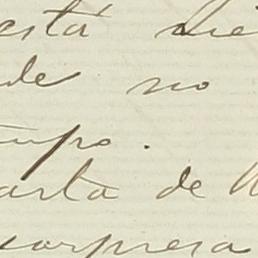 está
de no
empo.
carta de
sorpresa